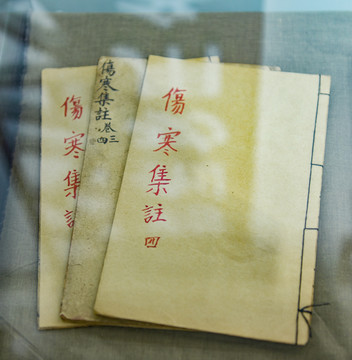 傷寒集註
傷寒集註 卷三、四
傷寒集註 四